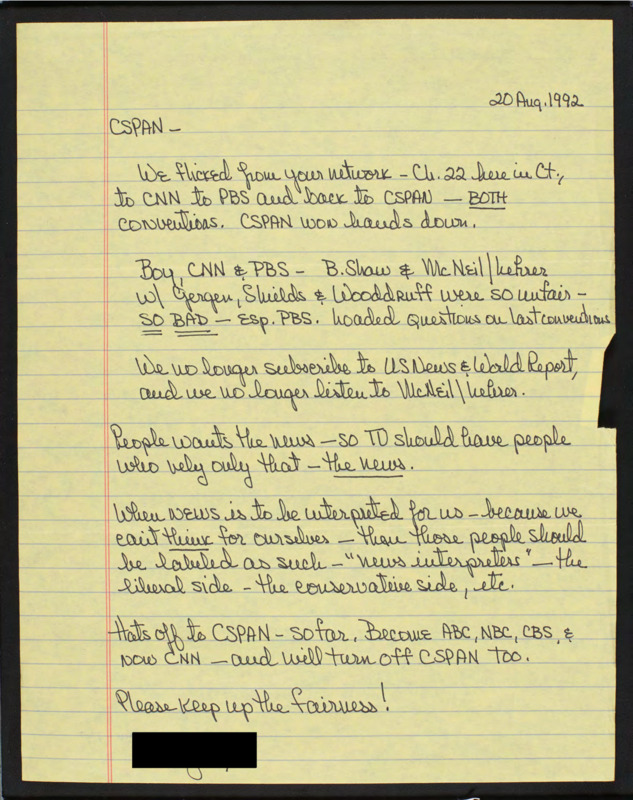 20 Aug. 1992
CSPAN –
We flicked from your network – Ch. 22 here in Ct.,
to CNN to PBS and back to CSPAN – BOTH
conventions. CSPAN won hands down.
Boy, CNN & PBS – B. Shaw & McNeil/Lehrer
w/ Gergen, Shields & Wooddruff were so unfair –
SO BAD – Esp. PBS. Loaded Questions on last conventions
We no longer subscribe to US News & World Report,
and we no longer listen to McNeil/Lehrer.
People wants the news – so TV should have people
who rely only that – the news.
When news is to be interpreted for us – because we
can't think for ourselves – then those people should
be labeled as such – "news interpreters" – the
liberal side – the conservative side, etc.
Hats off to CSPAN – so far. Become ABC, NBC, CBS, &
now CNN – and will turn off CSPAN too.
Please keep up the fairness!